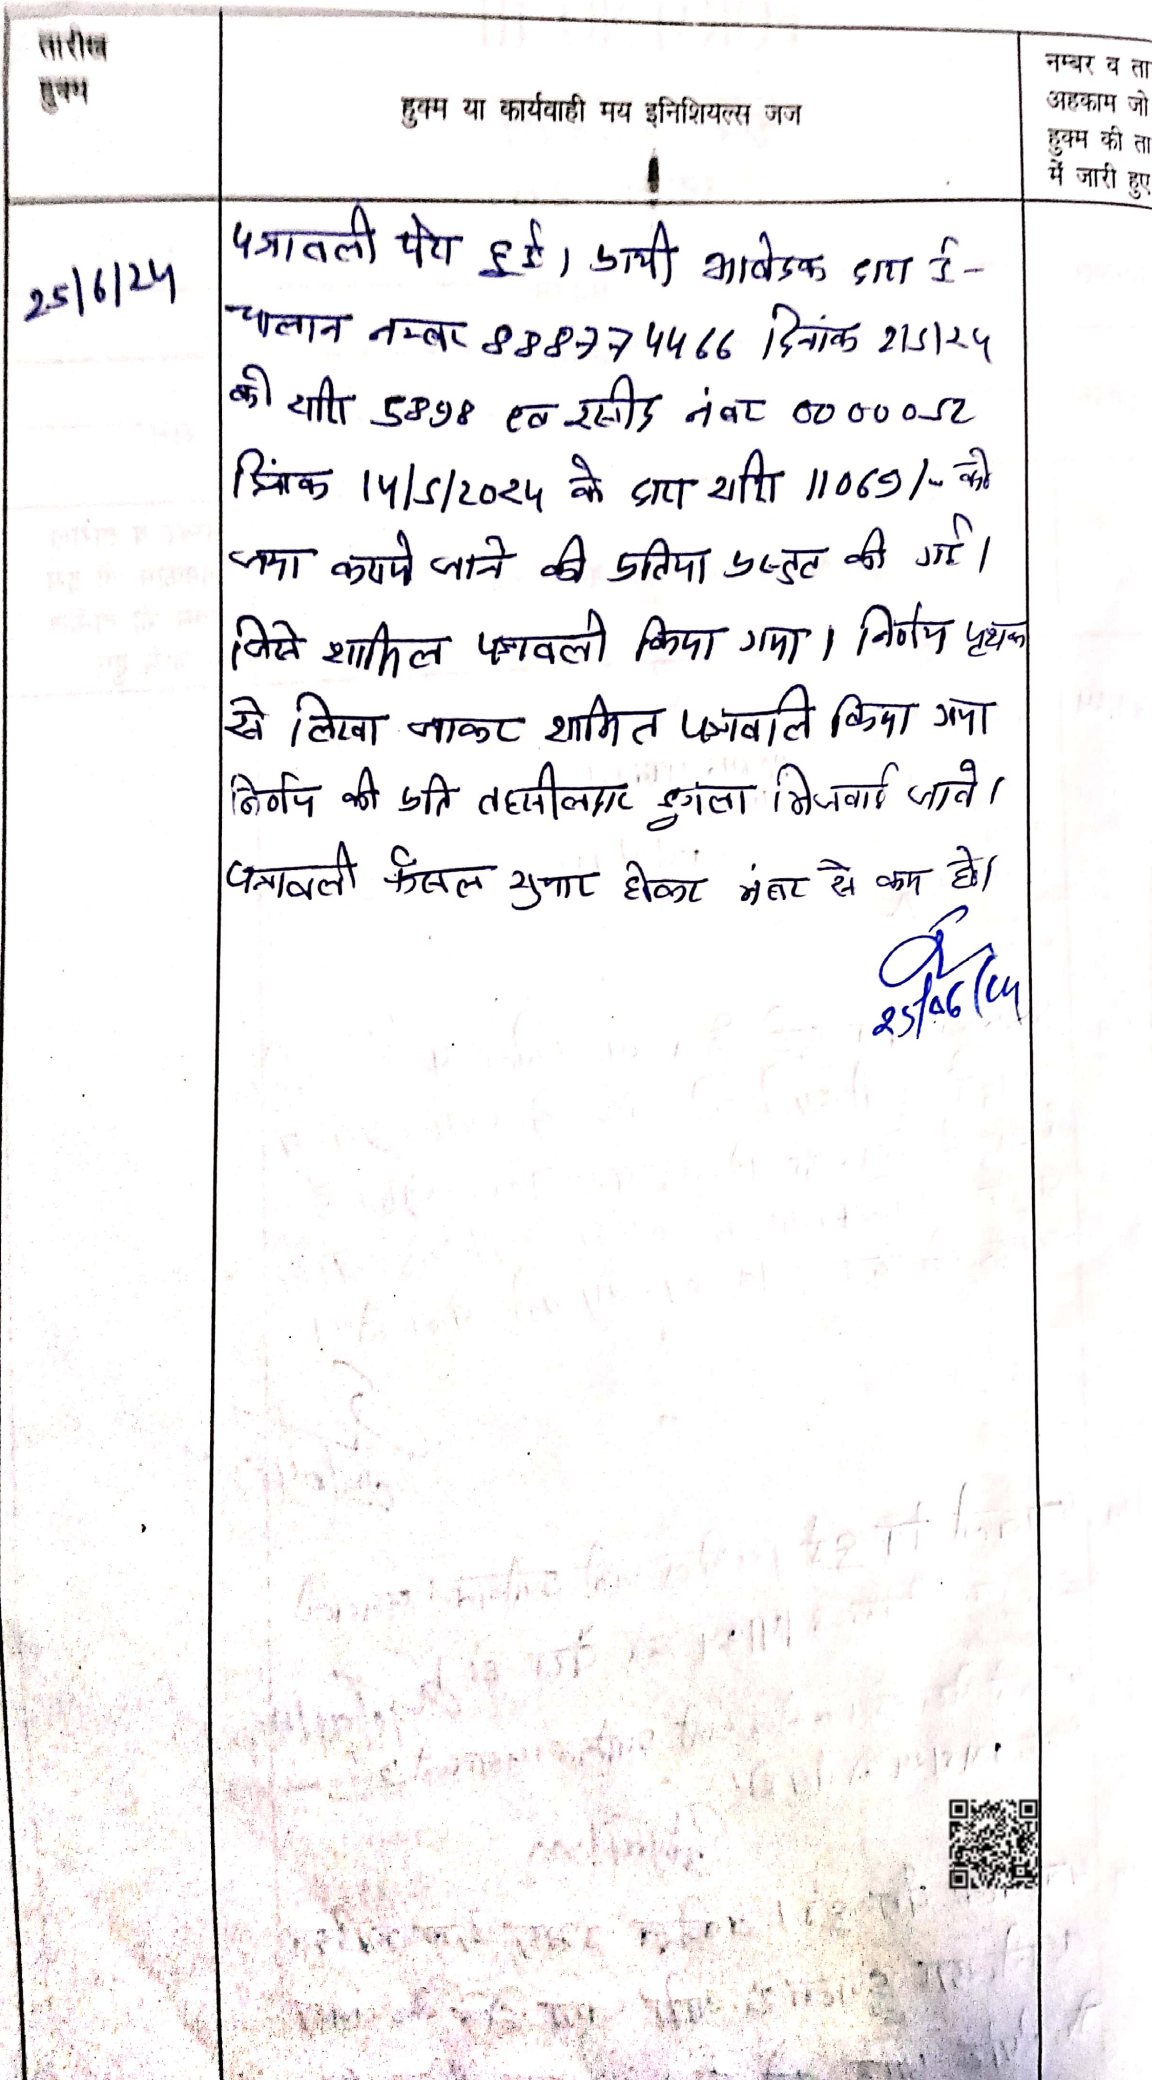 तारीख
हुक्म
हुक्म या कार्यवाही मय इनिशियल्स जज
नम्बर व ता
अहकाम जो
हुक्म की ता
में जारी हुए
25/6/24
पत्रावली पेश हुई। प्रार्थी आवेदक द्वारा ई-
चालान नम्बर 888774466 दिनांक 2/5/24
की राशि 5898 एवं रसीद नंबर 0000052
दिनांक 14/5/2024 के द्वारा राशि 11069/- को
जमा कराये जाने की प्रतिया प्रस्तुत की गई।
जिसे शामिल पत्रावली किया गया। निर्णय पृथक
से लिखा जाकर शामिल पत्रावलि किया गया
निर्णय की प्रति तहसीलदार डुंगला भिजवाई जावे।
पत्रावली फैसल शुमार होकर नंबर से कम हो।
25/06/24